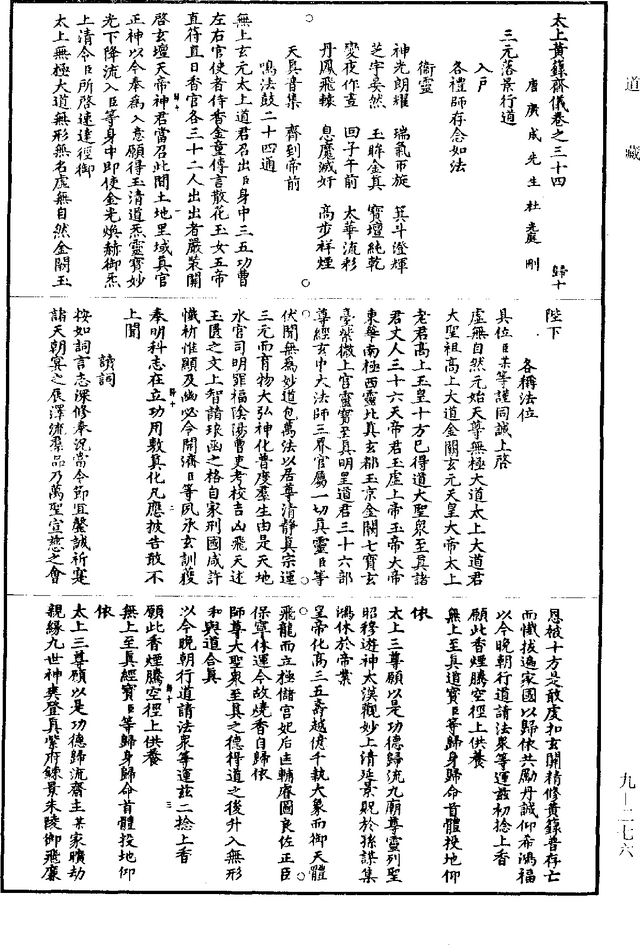 道藏
太上黃籙齋儀卷之三十四 歸十
唐廣成先生杜光庭刪
三元落景行道
入戶
各禮師存念如法
衞靈
神光朗耀 瑞氣帀旋 箕斗澄輝
芝宇晏然 玉眸金真 寶壇純乾
變夜作晝 回子午前 太華流彩
丹鳳飛轅 息魔滅奸 高步祥煙
天具音集 齊到帝前
鳴法鼓二十四通
無上玄元太上道君召出臣身中三五功曹
左右官使者侍香金童傳言散花玉女五帝
直符直日香官各三十二人出出者嚴裝關
啓玄壇天帝神君當召此間土地里域真官
正神以今奉爲入意願得玉清道炁靈寶妙
光下降流入臣等身中即使金光煥赫御炁
上清令臣所啓速達徑御
太上無極大道無形無名虛無自然金闕玉
陛下
各稱法位
具位臣某等謹同誠上啓
虛無自然元始天尊無極大道太上大道君
大聖祖高上大道金闕玄元天皇大帝太上
老君高上玉皇十方已得道大聖衆至真諸
君丈人三十六天帝君玉虛上帝玉帝大帝
東華南極西靈北真玄都玉京金闕七寶玄
臺紫微上宮靈寶至真明皇道君三十六部
尊經玄中大法師三界官屬一切真靈臣等
伏聞無爲妙道包萬法以居尊清靜真宗運
三元而育物大弘神化普度羣生由是天地
水官司明罪福陰陽曹吏考校吉凶飛天述
玉匱之文上智譜琅函之格自家刑國咸許
懺祈惟顯及幽必今開濟臣等夙承玄訓獲
奉明科志在立功用敷真化凡應披告敢不
上聞
讀詞
按如詞言志深修奉況當令節宜罄誠祈寔
諸天朝宴之辰澤流羣品乃萬聖宣慈之會
恩被十方是敢虔扣玄關精修黃籙普存亡
而懺拔遍家國以歸依共勵丹誠仰希鴻福
以今晚朝行道請法衆等運茲初捻上香
願此香煙騰空徑上供養
無上至真道寶臣等歸身歸命首體投地仰
依
太上三尊願以是功德歸流九廟尊靈列聖
昭穆遊神太漠觀妙上清延景貺於孫謀集
鴻休於帝業
皇帝化高三五壽越億千執大象而御天體
飛龍而立極儲宮妃后匡輔睿圖良佐正臣
保寧休運今故燒香自歸依
師尊大聖衆至真之德得道之後升入無形
和與道合真
以今晚朝行道請法衆等運茲二捻上香
願此香煙騰空徑上供養
無上至真經寶臣等歸身歸命首體投地仰
依
太上三尊願以是功德歸流齋主某家曠劫
親緣九世神爽登真紫府鍊景朱陵御飛廉
九—二七六